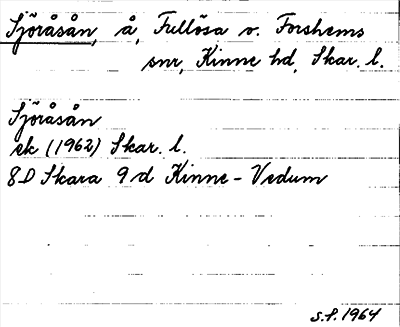 Sjöråsån, å, Fullösa o. Forshems
snr, Kinne hd, Skar. l.
Sjöråsån
ek (1962) Skar. l.
8D Skara 9d Kinne-Vedum
S.F. 1964